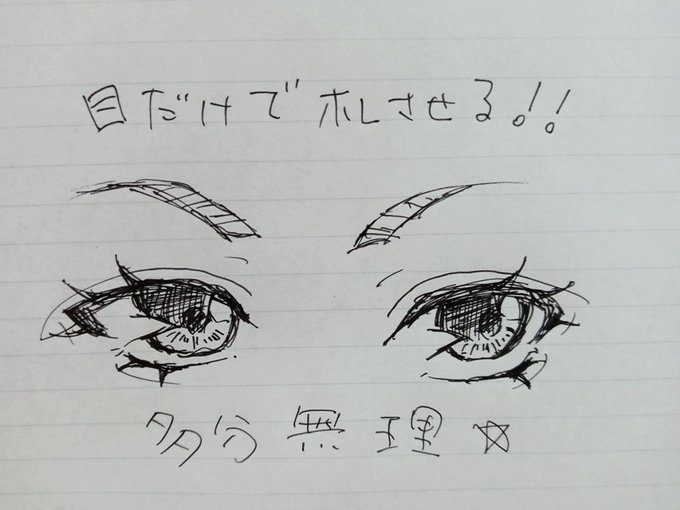 目だけでホレさせる!!
多分無理☆